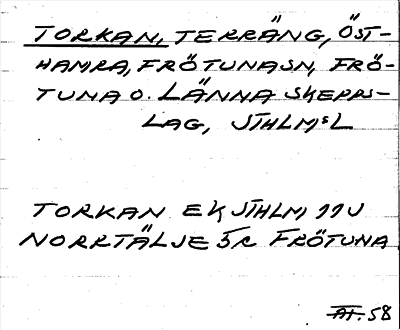 TORKAN, TERRÄNG, ÖST-
HAMRA, FRÖTUNA SN, FRÖ-
TUNA O. LÄNNA SKEPPS-
LAG, STHLMS L
TORKAN EK STHLM 11J
NORRTÄLJE 5C FRÖTUNA
58